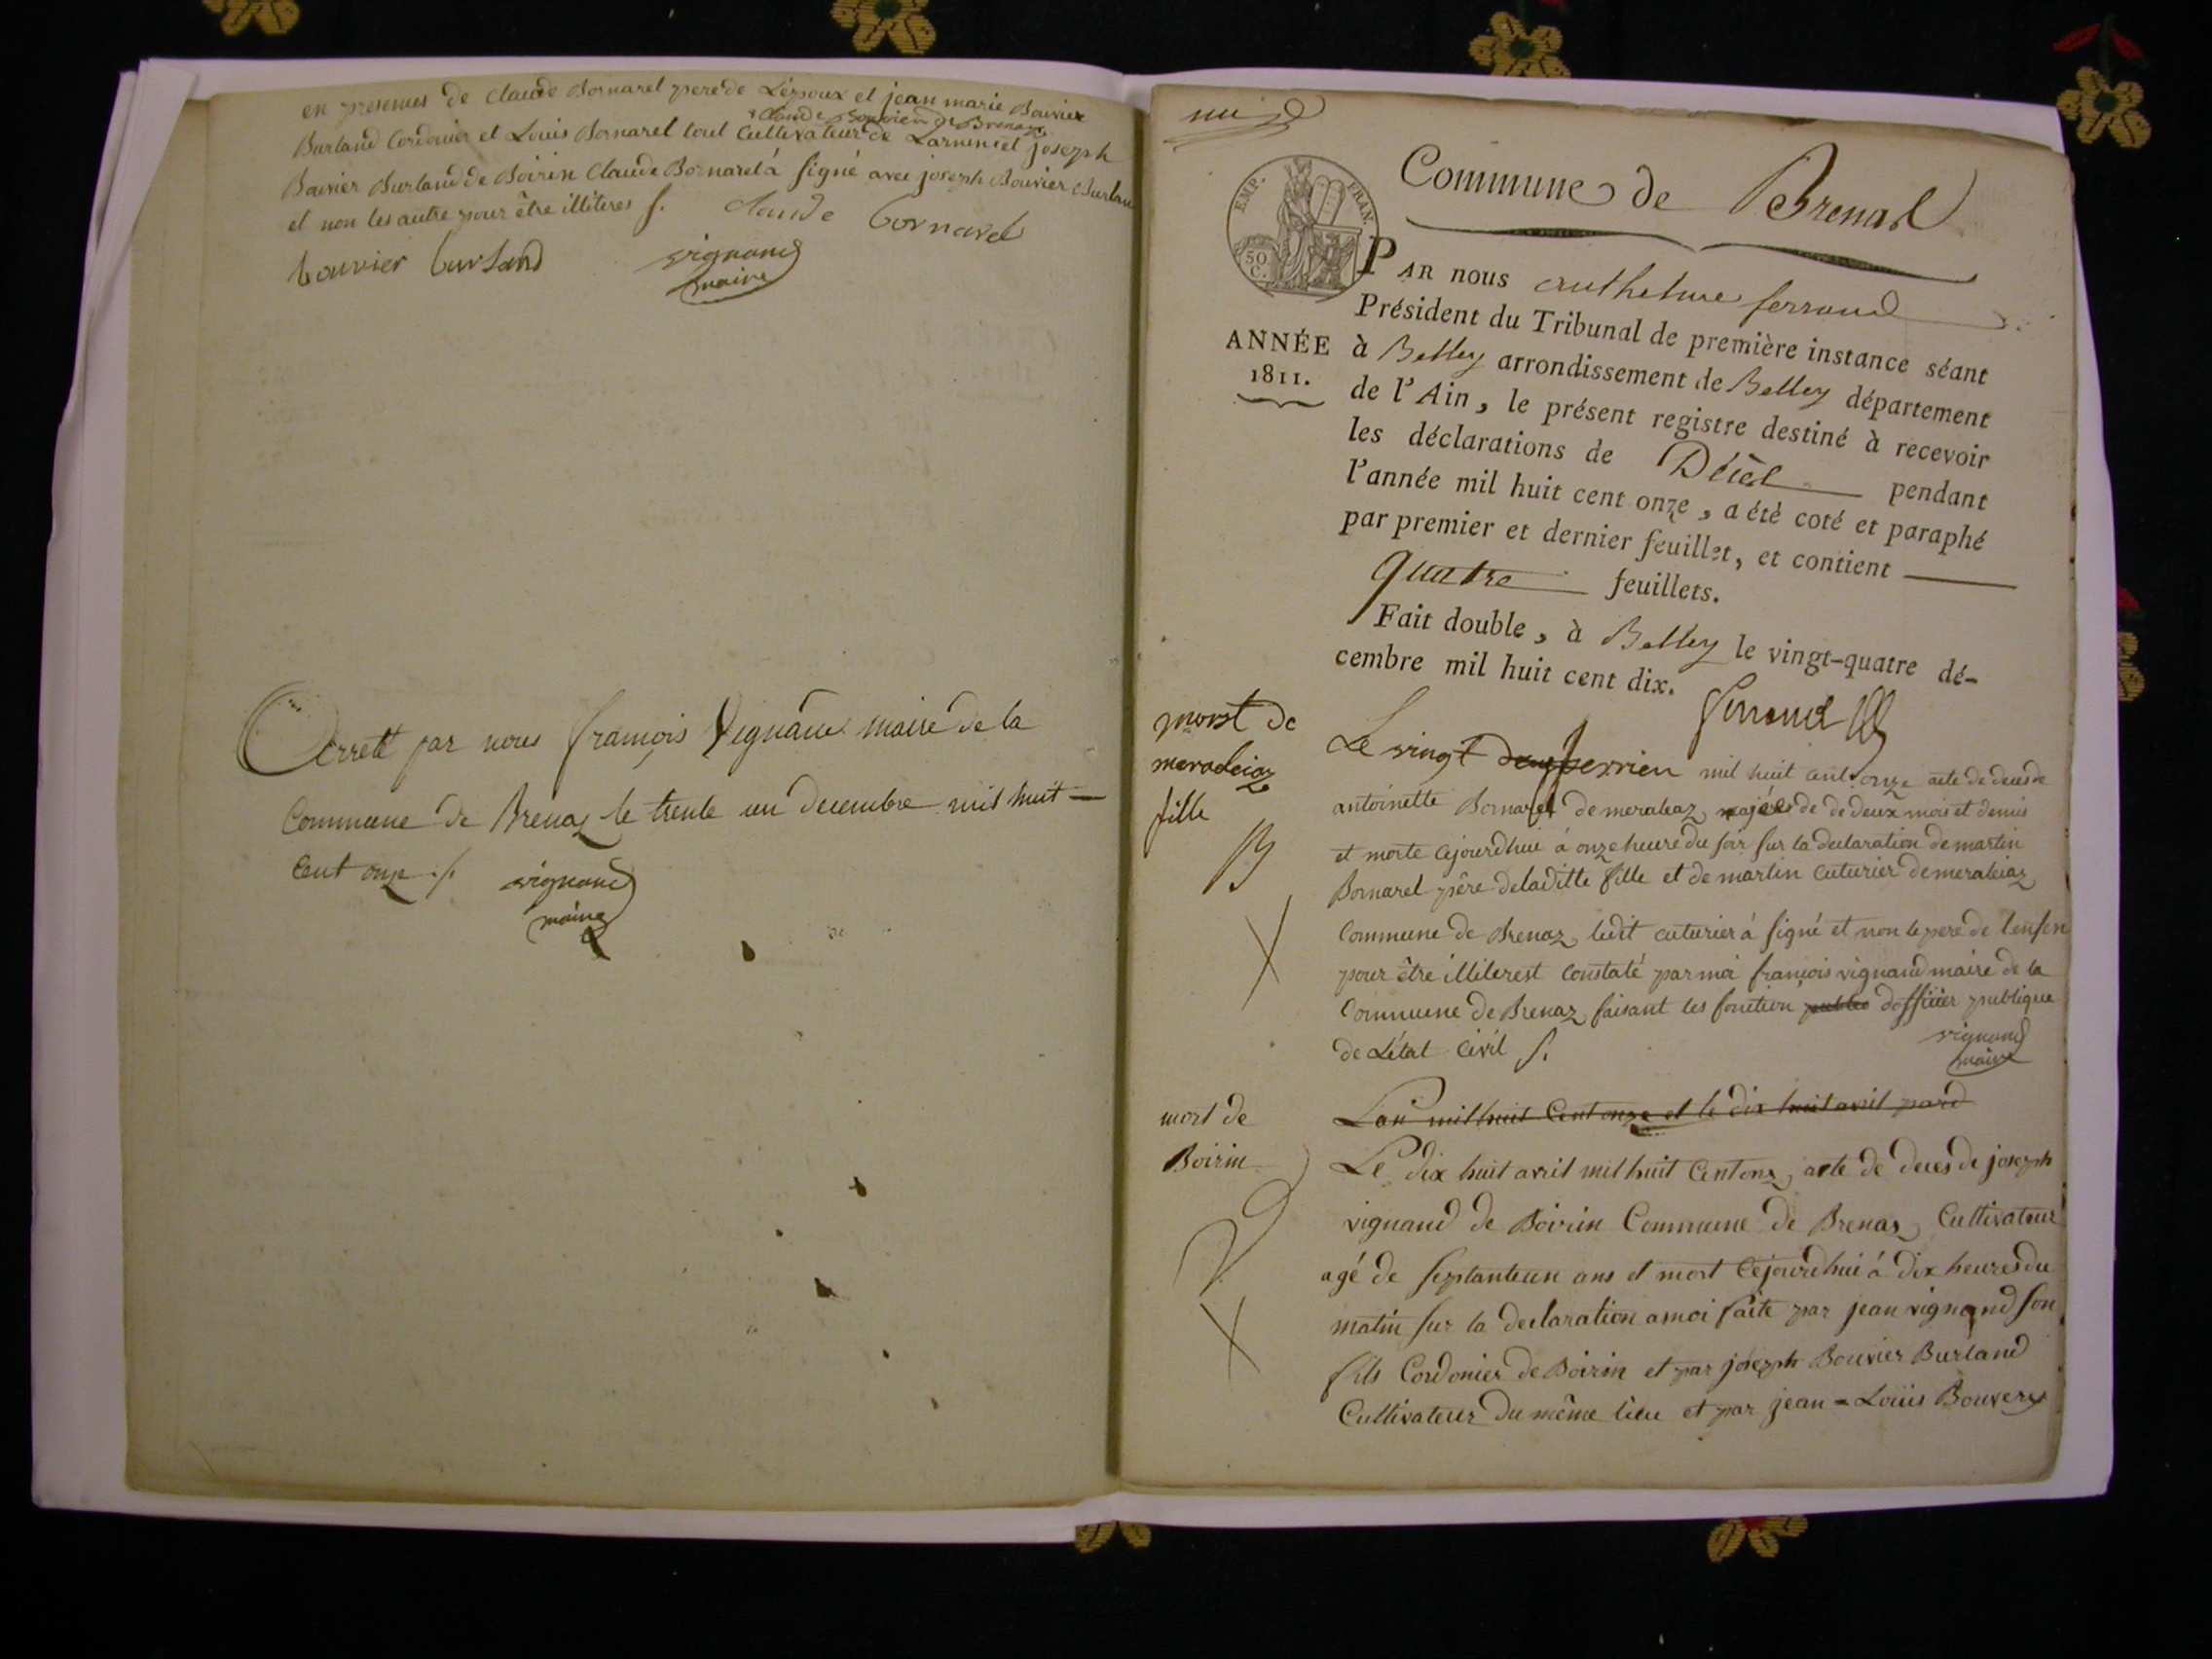 en presences de Claude Bornarel pere de L'epoux et jean marie Bouvier
+ Claude Bouvier de Brenaz
Burland Cordonier et Louis Bornarel tout Cultivateur de et joseph
Bouvier Burland de Boirin Claude Bornarel á signé avec joseph Bouvier Burlan
et non les autre pour être illiteres ſ. Claude bornarel
bouvier burland vignand
maire
Arreté par nous françois Vignand maire de la
Commune de Brénaz le trente un decembre mil huit —
Cent onze ./. vignand
maire
Commune de Brenas
EMP. FRAN.
50 C.
PAR nous anthelme ferrand
Président du Tribunal de première instance séant
ANNÉE à Belley arrondissement de Belley département
1811. de l'Ain, le présent registre destiné à recevoir
les déclarations de Décès pendant
l'année mil huit cent onze, a été coté et paraphé
par premier et dernier feuillet, et contient
quatre feuillets.
Fait double, à Belley le vingt-quatre dé-
cembre mil huit cent dix. ferrand
mort de
meraleiaz
fille
Le vingt mil huit cent onze acte de deces de
antoinette Bornarel de meraleaz de deux mois et demis
et morte cejourdhui á onze heure du soir sur la declaration de martin
Bornarel père de laditte fille et de martin cuturier de meraleiaz
Commune de Brenaz ledit cuturier á signé et non le pere de l'enfen
pour être illiterest constaté par moi françois vignand maire de la
Commune de Brenaz faisant les fonction public dofficier publique
de L'état Civil ſ. vignand
maire
mort de
Boirin
L'an mil huit Cent onze et le dix huit avril pard
Le dix huit avril mil huit Cent onz, acte de deces de joseph
vignand de Boirin Commune de Brenas, Cultivateur
agé de septanteun ans et mort Cejourdhui á dix heures du
matin sur la declaration amoi faite par jean vignand son
fils Cordonier de Boirin et par joseph Bouvier Burland
Cultivateur du même lieu et par jean = Louis Bouvery